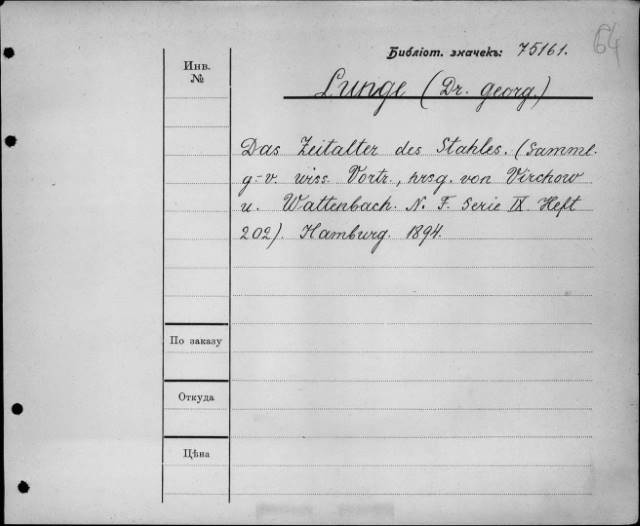 64
Библіот. значекъ: 75161.
Инв.
№
Lunge (Dr. georg.)
Das Zeitalter des Stahles. (Samml.
g-v. wiss. Vortr., hrsg. von Virchow
u. Wattenbach. N. F. Serie IX. Heft
202). Hamburg. 1894.
По заказу
Откуда
Цѣна